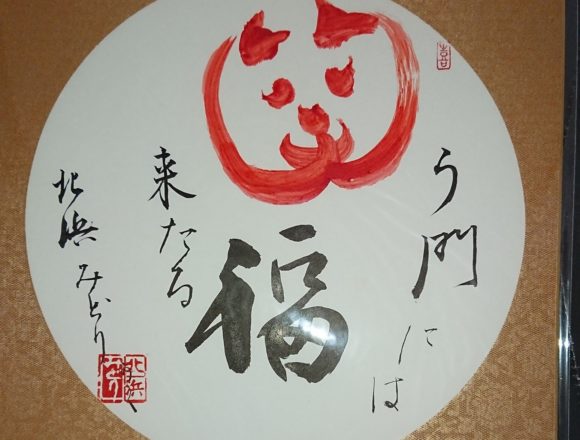 笑
う門には
福
来たる
北浜みどり
北浜